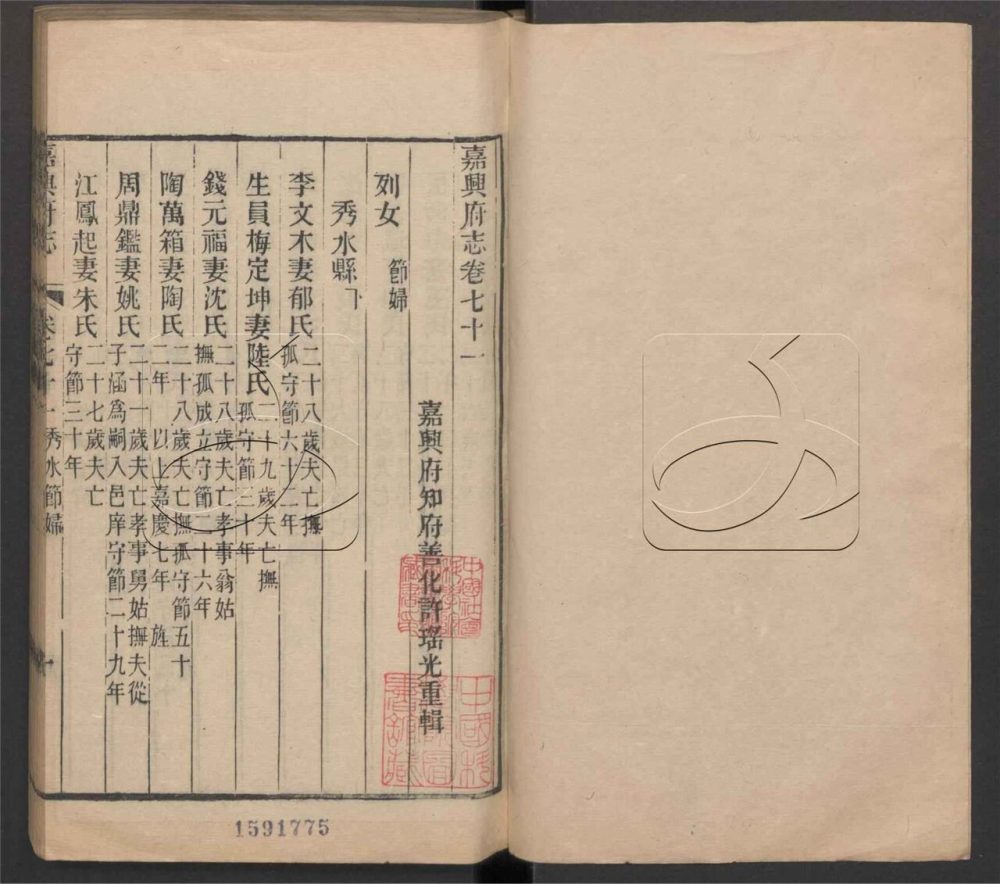 嘉興府志卷七十一
嘉興府知府善化許瑤光重輯
列女　節婦
秀水縣
李文木妻郁氏二十八歲夫亡撫
孤守節六十二年
生員梅定坤妻陸氏二十九歲夫亡撫
孤守節三十年
錢元福妻沈氏二十八歲夫亡孝事翁姑
撫孤成立守節二十六年
陶萬箱妻陶氏二十八歲夫亡撫孤守節五十
二年　以上嘉慶七年　旌
周鼎鑑妻姚氏二十一歲夫亡孝事舅姑撫夫從
子涵爲嗣入邑庠守節二十九年
江鳳起妻朱氏二十七歲夫亡
守節三十年
嘉興府志　卷七十一秀水節婦　一
1591775